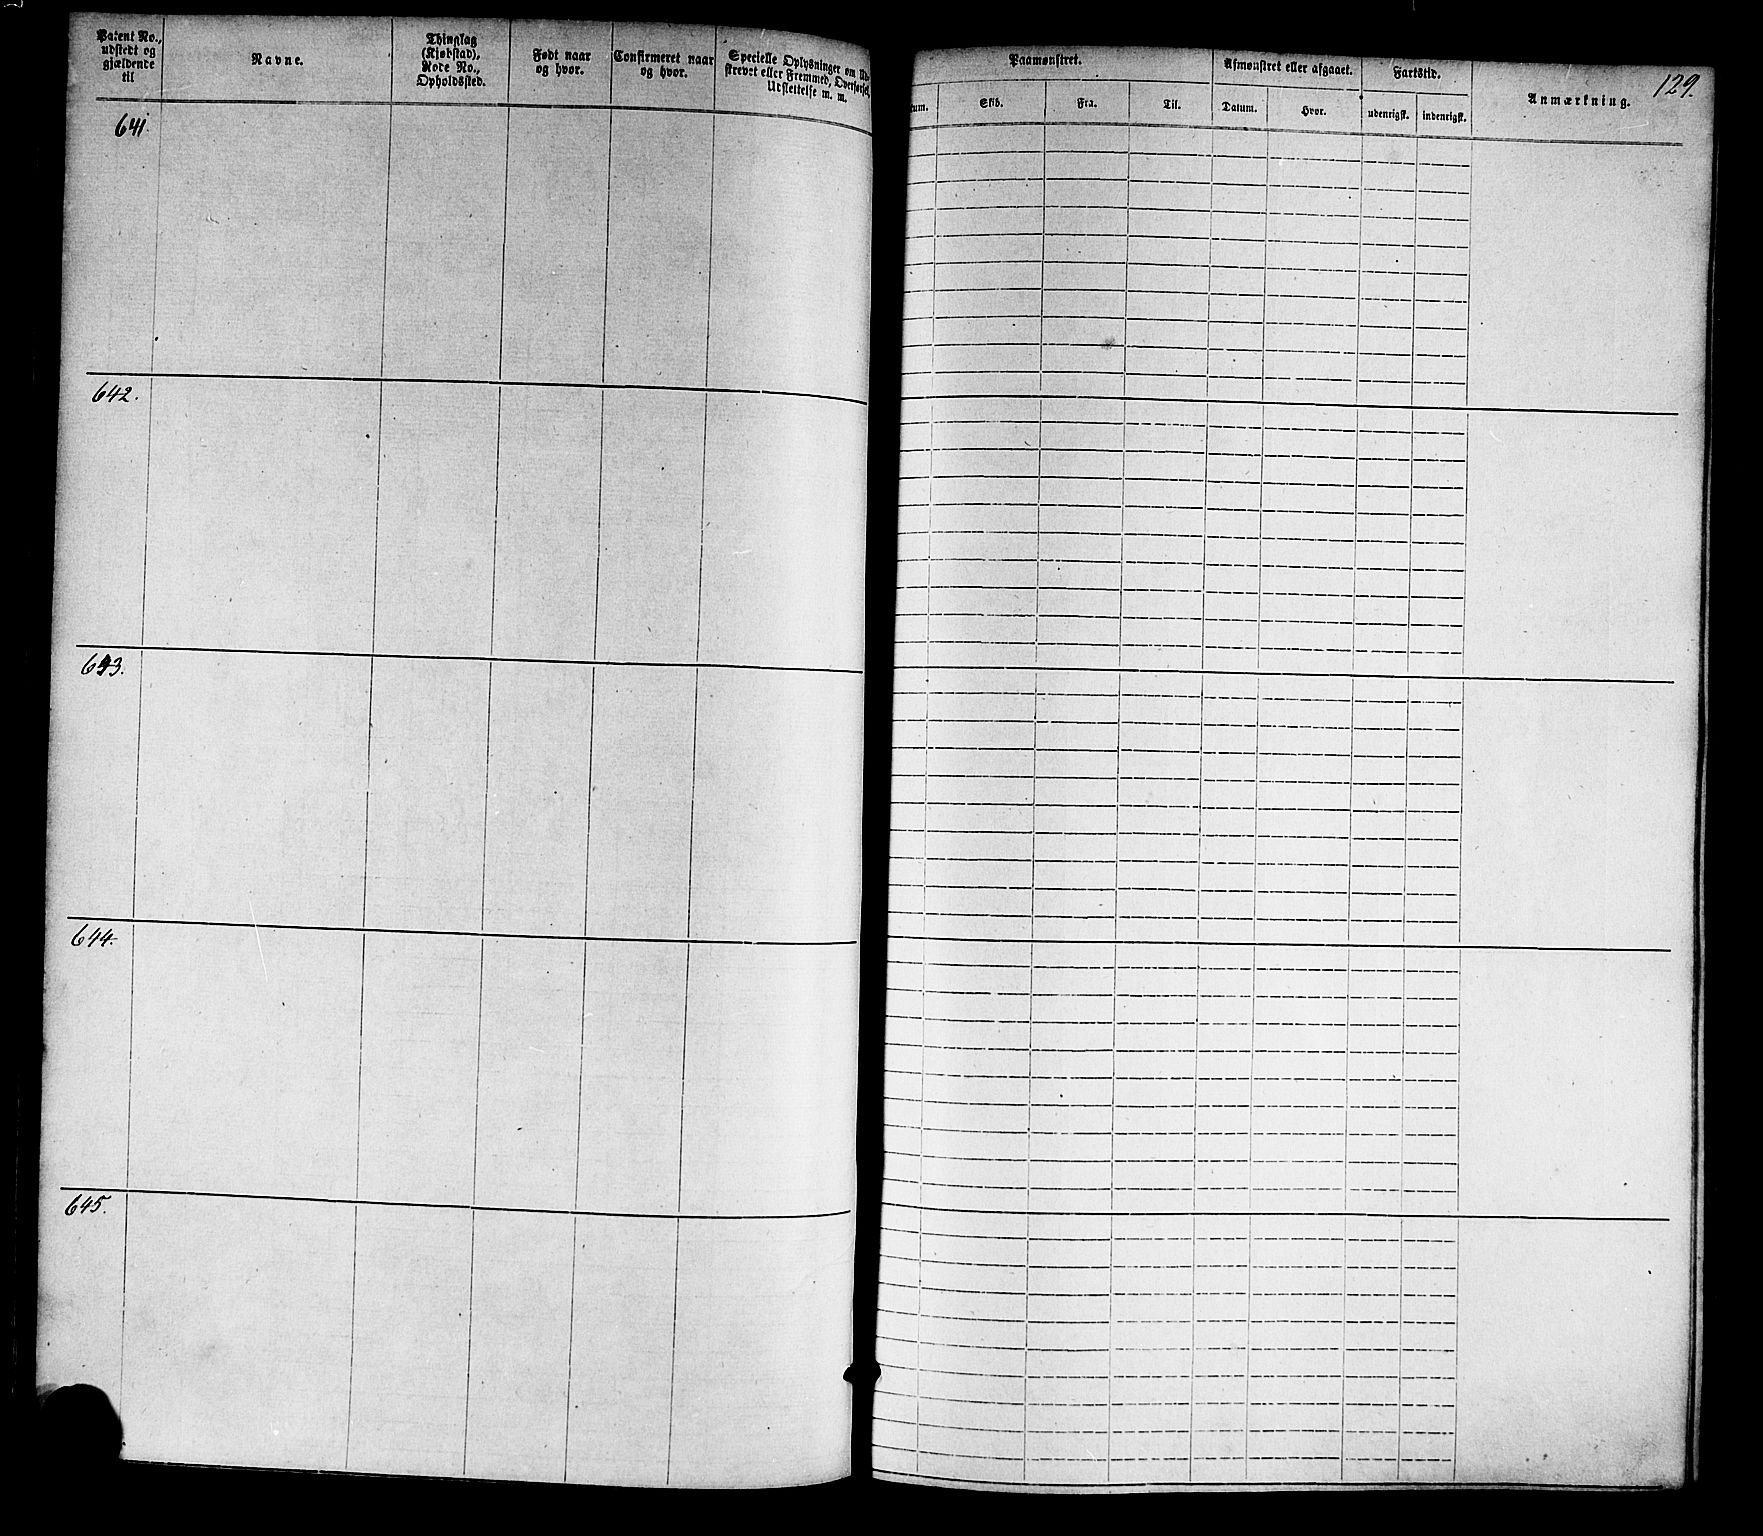 Patent No.,
udstedt og
gjældende
til
Navne.
Thinglag
(Kjøbstad),
Rode No.,
Opholdssted.
Født naar
og hvor.
Confirmeret naar
og hvor.
Specielle Oplysninger om
strevet eller Fremmed, Overførsel,
Udslettelse m. m.
Paamønstret.
Afmønstret eller afgaaet.
Fartstid.
Anmærkning.
129.
tum.
Skib.
Fra.
Til.
Datum.
Hvor.
udenrigsk.
indenrigsk.
641.
642.
643.
644.
645.